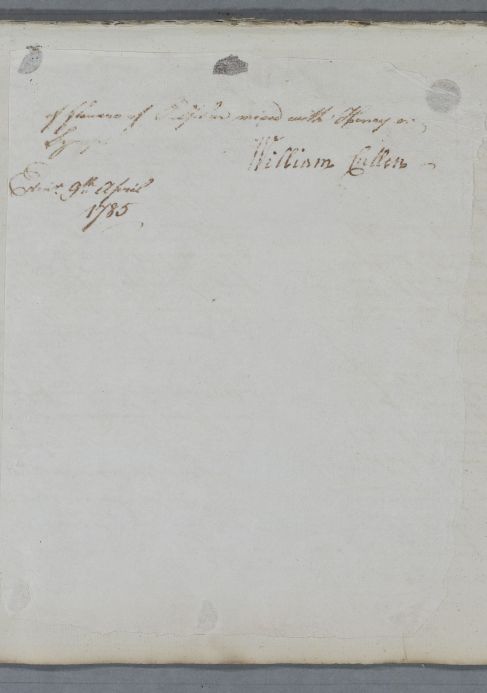 of flowers of Sulphur mixed with Honey or
Syrup.
William Cullen
Edinr. 9th April
1785